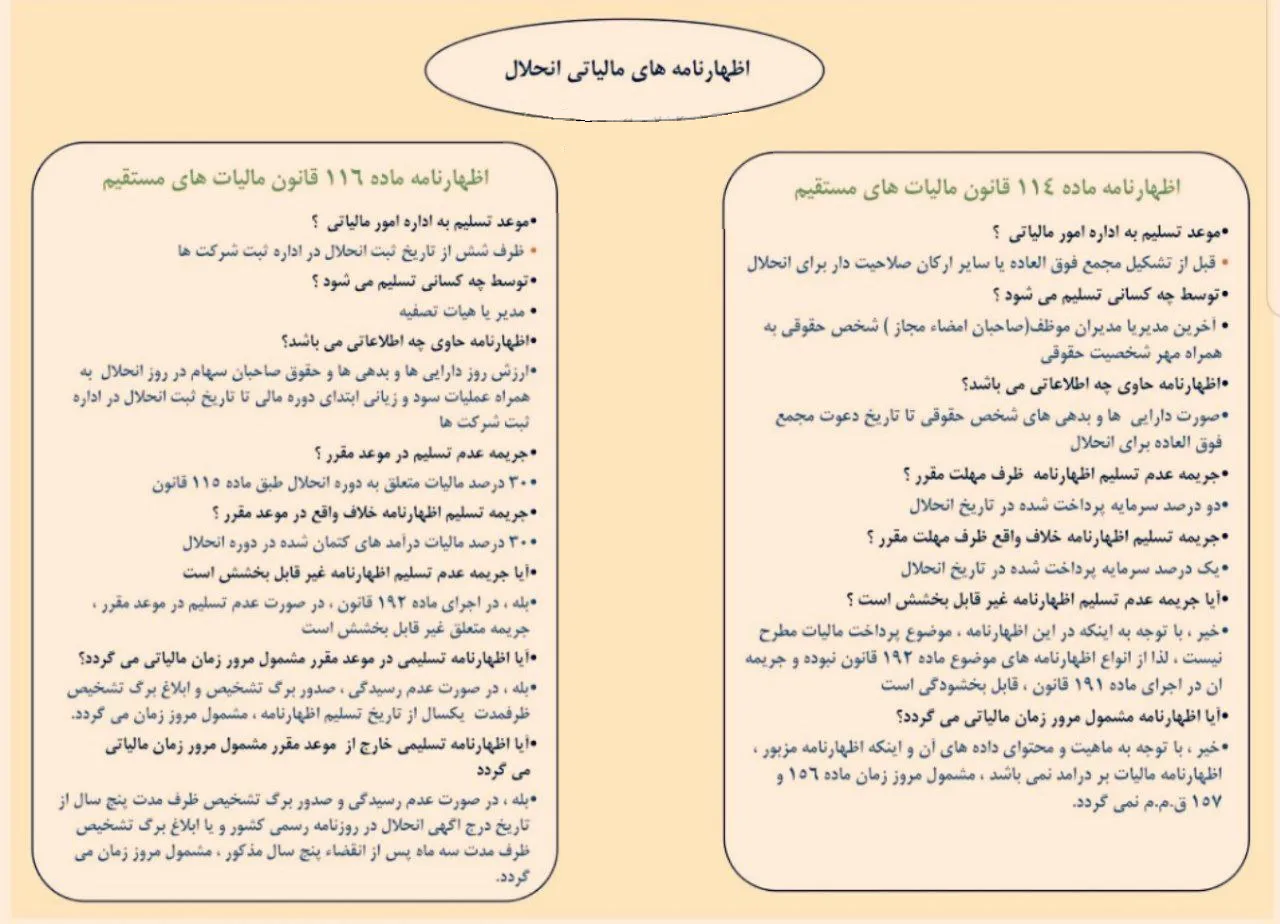 اظهارنامه های مالیاتی انحلال
اظهارنامه ماده ۱۱٤ قانون مالیات های مستقیم
•موعد تسلیم به اداره امور مالیاتی ؟
• قبل از تشکیل مجمع فوق العاده یا سایر ارکان صلاحیت دار برای انحلال
•توسط چه کسانی تسلیم می شود ؟
• آخرین مدیریا مدیران موظف(صاحبان امضاء مجاز ) شخص حقوقی به
همراه مهر شخصیت حقوقی
•اظهارنامه حاوی چه اطلاعاتی می باشد؟
•صورت دارایی ها و بدهی های شخص حقوقی تا تاریخ دعوت مجمع
فوق العاده برای انحلال
•جریمه عدم تسلیم اظهارنامه ظرف مهلت مقرر ؟
•دو درصد سرمایه پرداخت شده در تاریخ انحلال
•جریمه تسلیم اظهارنامه خلاف واقع ظرف مهلت مقرر ؟
•یک درصد سرمایه پرداخت شده در تاریخ انحلال
•آیا جریمه عدم تسلیم اظهارنامه غیر قابل بخشش است ؟
•خیر ، با توجه به اینکه در این اظهارنامه ، موضوع پرداخت مالیات مطرح
نیست ، لذا از انواع اظهارنامه های موضوع ماده ۱۹۲ قانون نبوده و جریمه
ان در اجرای ماده ۱۹۱ قانون ، قابل بخشودگی است
•آیا اظهارنامه مشمول مرور زمان مالیاتی می گردد؟
•خیر ، با توجه به ماهیت و محتوای داده های آن و اینکه اظهارنامه مزبور ،
اظهارنامه مالیات بر درامد نمی باشد ، مشمول مروز زمان ماده ۱٥٦ و
۱٥۷ ق.م.م نمی گردد.
اظهارنامه ماده ۱۱٦ قانون مالیات های مستقیم
•موعد تسلیم به اداره امور مالیاتی ؟
• ظرف شش از تاریخ ثبت انحلال در اداره ثبت شرکت ها
•توسط چه کسانی تسلیم می شود ؟
• مدیر یا هیات تصفیه
•اظهارنامه حاوی چه اطلاعاتی می باشد؟
•ارزش روز دارایی ها و بدهی ها و حقوق صاحبان سهام در روز انحلال به
همراه عملیات سود و زیانی ابتدای دوره مالی تا تاریخ ثبت انحلال در اداره
ثبت شرکت ها
•جریمه عدم تسلیم در موعد مقرر ؟
•۳۰ درصد مالیات متعلق به دوره انحلال طبق ماده ۱۱٥ قانون
•جریمه تسلیم اظهارنامه خلاف واقع در موعد مقرر ؟
•۳۰ درصد مالیات درآمد های کتمان شده در دوره انحلال
•آیا جریمه عدم تسلیم اظهارنامه غیر قابل بخشش است
•بله ، در اجرای ماده ۱۹۲ قانون ، در صورت عدم تسلیم در موعد مقرر ،
جریمه متعلق غیر قابل بخشش است
•آیا اظهارنامه تسلیمی در موعد مقرر مشمول مرور زمان مالیاتی می گردد؟
•بله ، در صورت عدم رسیدگی ، صدور برگ تشخیص و ابلاغ برگ تشخیص
ظرفمدت یکسال از تاریخ تسلیم اظهارنامه ، مشمول مروز زمان می گردد.
•آیا اظهارنامه تسلیمی خارج از موعد مقرر مشمول مرور زمان مالیاتی
می گردد
•بله ، در صورت عدم رسیدگی و صدور برگ تشخیص ظرف مدت پنج سال از
تاریخ درج اگهی انحلال در روزنامه رسمی کشور و یا ابلاغ برگ تشخیص
ظرف مدت سه ماه پس از انقضاء پنج سال مذکور ، مشمول مروز زمان می
گردد.